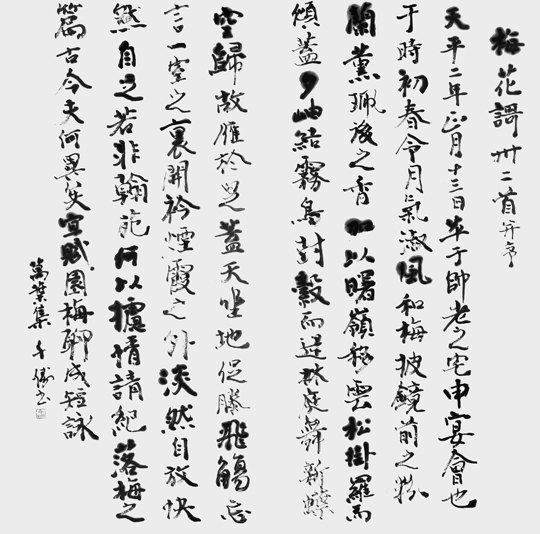 梅花謌卅二首并序
天平二年正月十三日萃于帥老之宅申宴會也
于時初春令月氣淑風和梅披鏡前之粉
蘭薫珮後之香加以曙嶺移雲松掛羅而
傾蓋夕岫結霧鳥封縠而迷林庭舞新蝶
空歸故雁於是蓋天坐地促膝飛觴忘
言一室之裏開衿煙霞之外淡然自放快
然自足若非翰苑何以攄情請紀落梅之
篇古今夫何異矣宜賦園梅聊成短詠
萬葉集